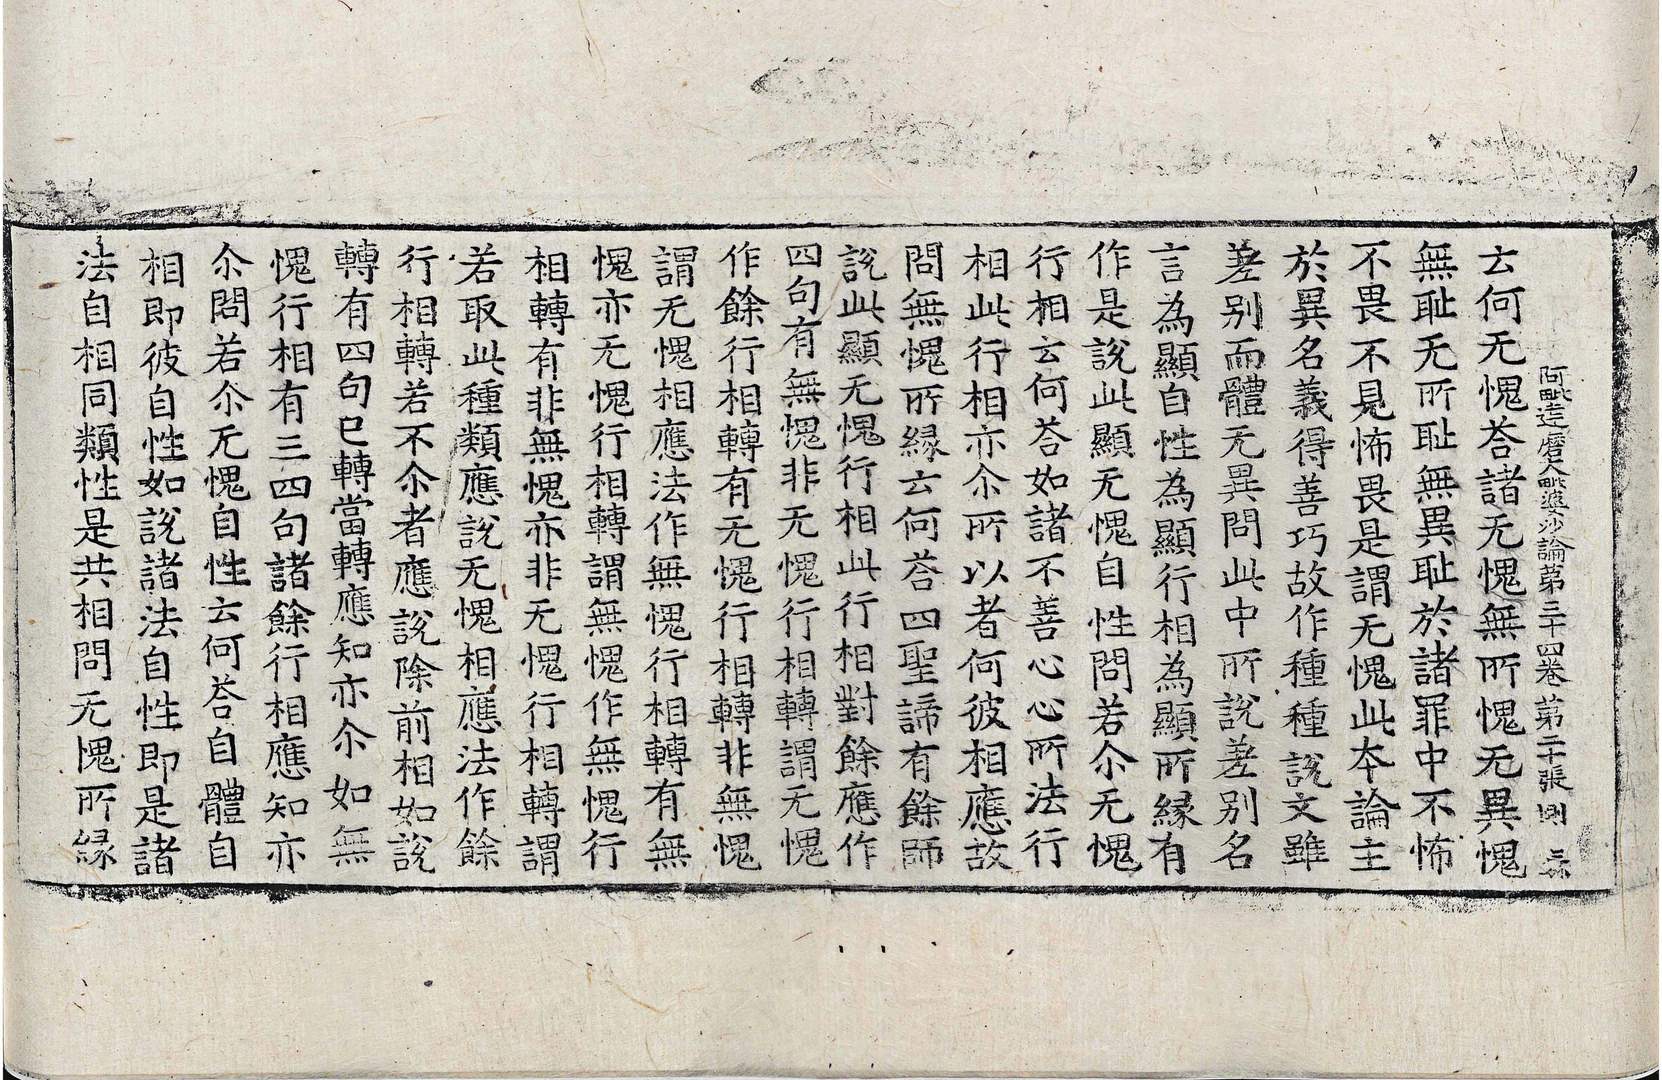 阿毗達磨大毗婆沙論第三十四卷 第二十張 㓻
云何无愧荅諸无愧無所愧无異愧
無耻无所耻無異耻於諸罪中不怖
不畏不見怖畏是謂无愧此本論主
於異名義得善巧故作種種說文雖
差别而體无異問此中所說差别名
言為顯自性為顯行相為顯所緣有
作是說此顯无愧自性問若尒无愧
行相云何荅如諸不善心心所法行
相此行相亦尒所以者何彼相應故
問無愧所緣云何荅四聖諦有餘師
說此顯无愧行相此行相對餘應作
四句有無愧非无愧行相轉謂无愧
作餘行相轉有无愧行相轉非無愧
謂无愧相應法作無愧行相轉有無
愧亦无愧行相轉謂無愧作無愧行
相轉有非無愧亦非无愧行相轉謂
若取此種類應說无愧相應法作餘
行相轉若不尒者應說除前相如說
轉有四句已轉當轉應知亦尒如無
愧行相有三四句諸餘行相應知亦
尒問若尒无愧自性云何荅自體自
相即彼自性如說諸法自性即是諸
法自相同類性是共相問无愧所緣